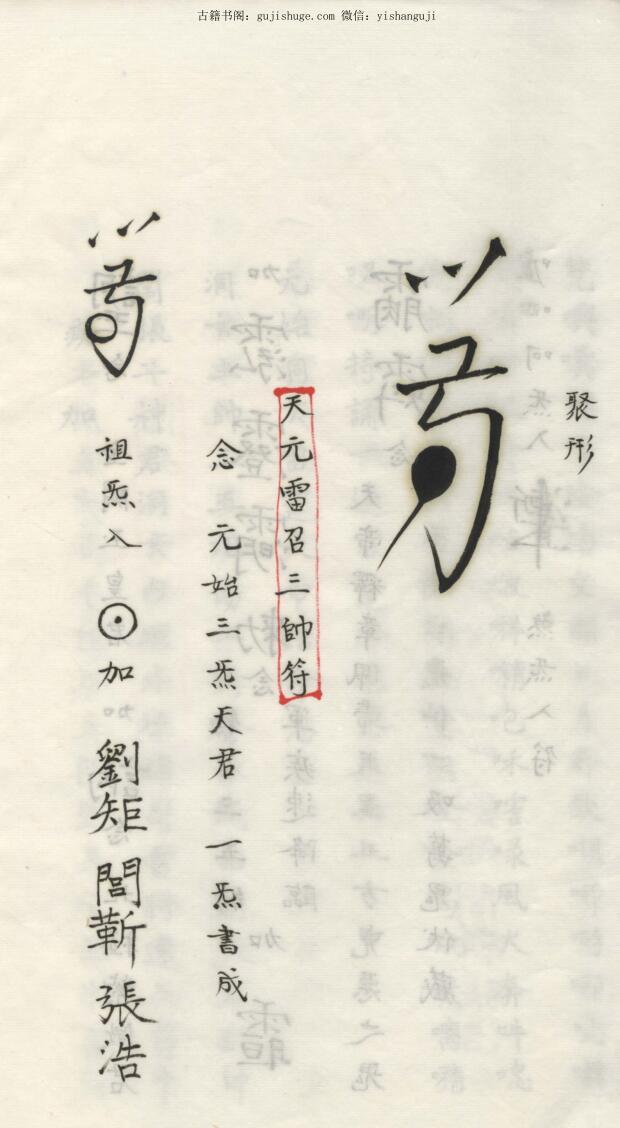 古籍书阁：gujishuge.com 微信：yishanguji
聚形
天元雷召三帥符
念 元始三炁天君 一炁書成
祖炁入⊙加 劉矩 閭蘄 張浩